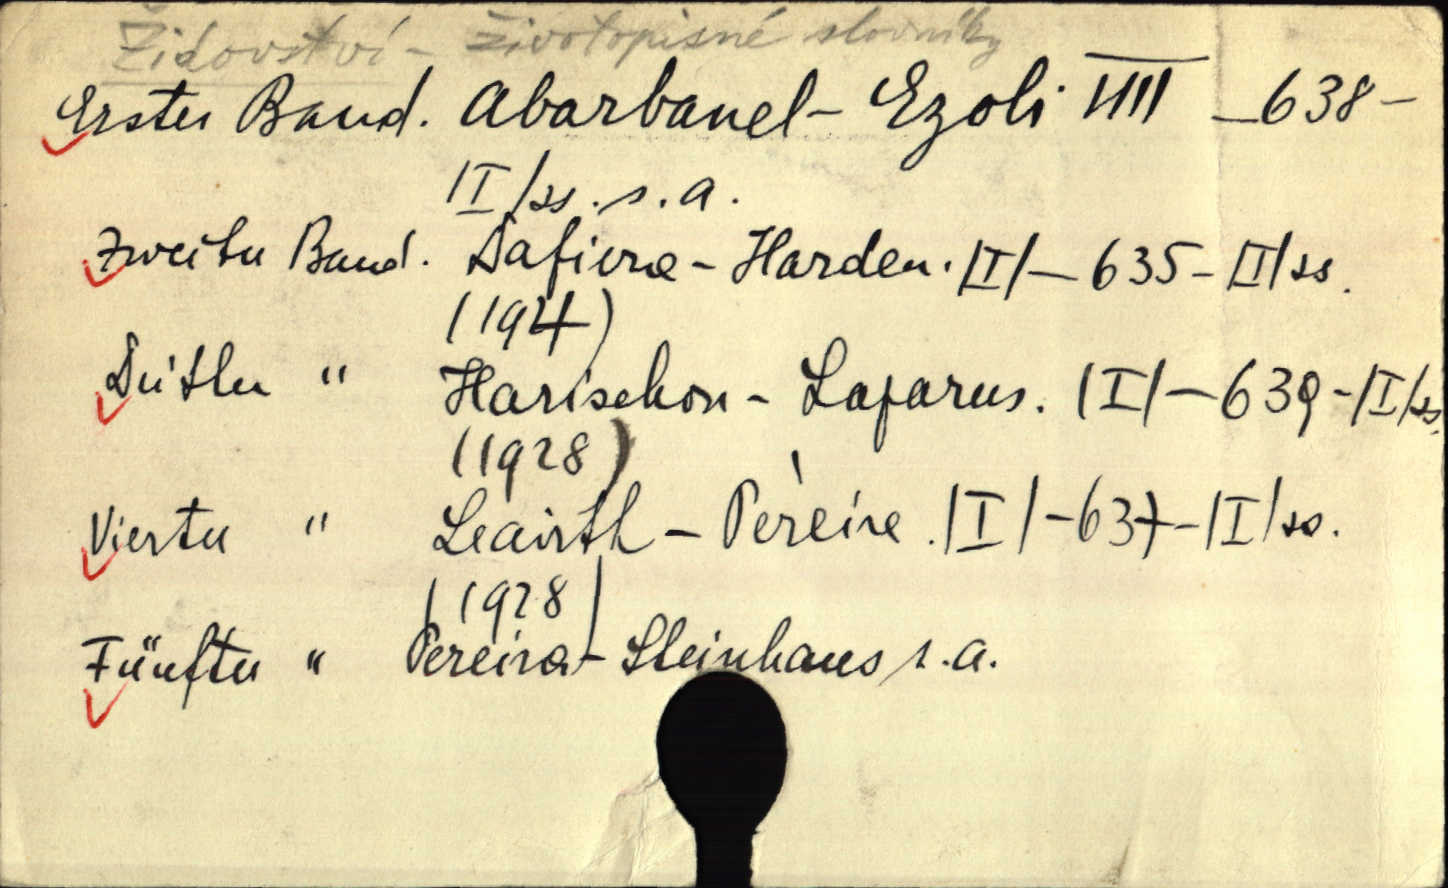 Židovství - životopisné slovníky
Erster Band. Abarbanel - Ezobi VIII - 638 -
|I|ss. s. a.
Zweiter Band. Dafiera - Harden. |I| - 635 - |I|ss.
(1927)
Dritter " Harischon - Lazarus. |I| - 639 - |I|ss.
(1928)
Vierter " Leavith - Pereire. |I| - 637 - |I|ss.
(1928)
Fünfter " Pereira - Steinhaus s. a.